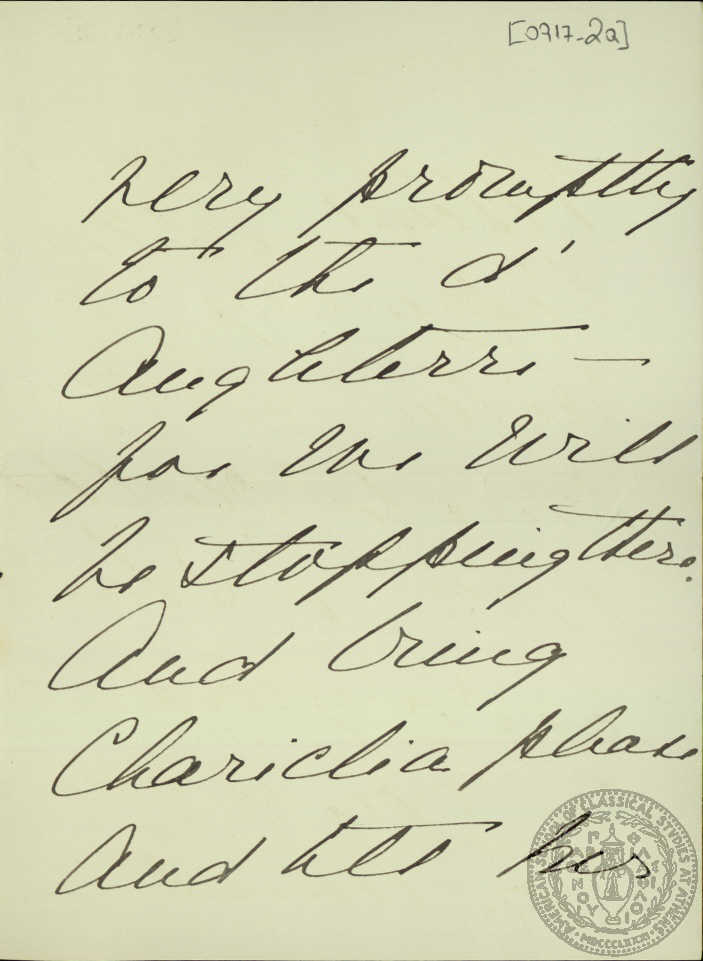 [0717-2a]
very promptly
to the d'
Angleterre —
for we will
be stopping there.
And bring
Chariclia please
and tell her
AMERICAN SCHOOL OF CLASSICAL STUDIES AT ATHENS
MDCCCLXXXI